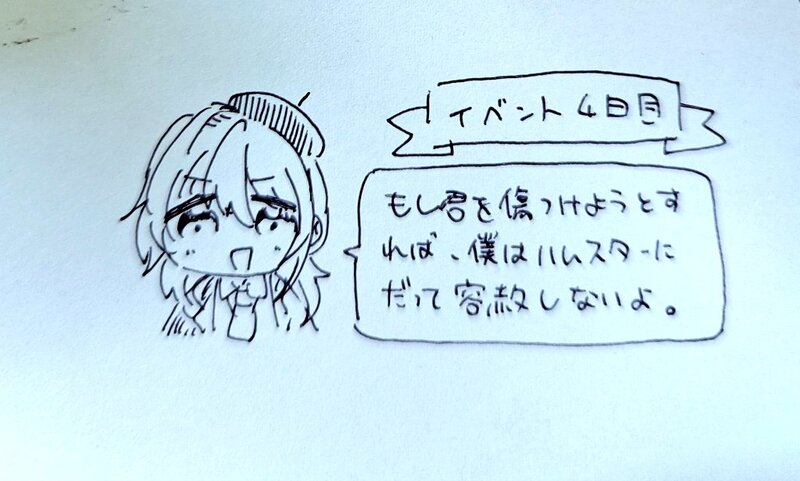 イベント4日目
もし君を傷つけようとす
れば、僕はハムスターに
だって容赦しないよ。